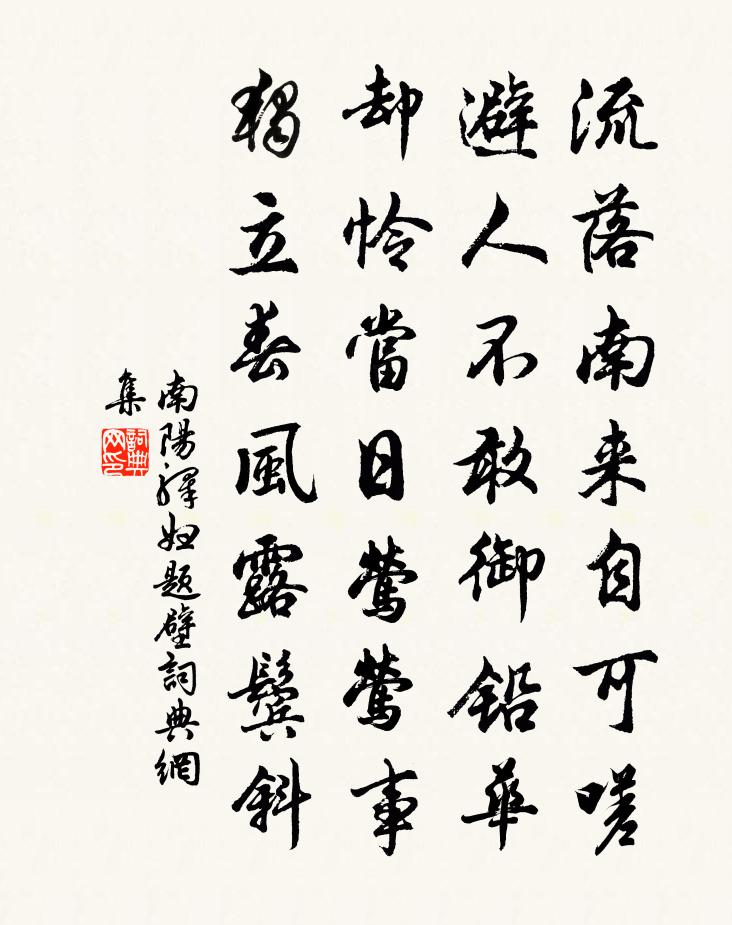 流落南来自可嗟
避人不敢御铅華
却怜當日鶯鶯事
獨立春風露鬓斜
南陽驛婦題壁詞典網
集
詞典
网印